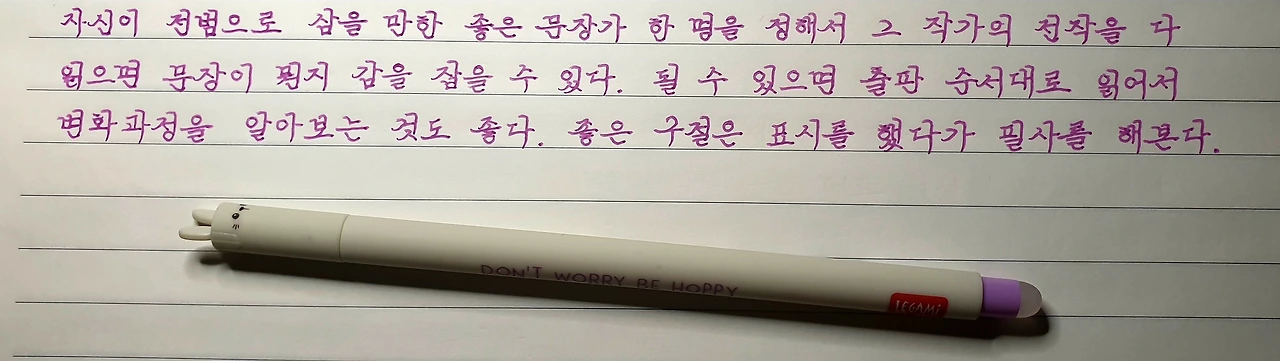 자신이 전범으로 삼을 만한 좋은 문장가 한 명을 정해서 그 작가의 전작을 다
읽으면 문장이 뭔지 감을 잡을 수 있다. 될 수 있으면 출판 순서대로 읽어서
변화과정을 알아보는 것도 좋다. 좋은 구절은 표시를 했다가 필사를 해본다.
DON'T WORRY BE HOPPY
LEGAMI